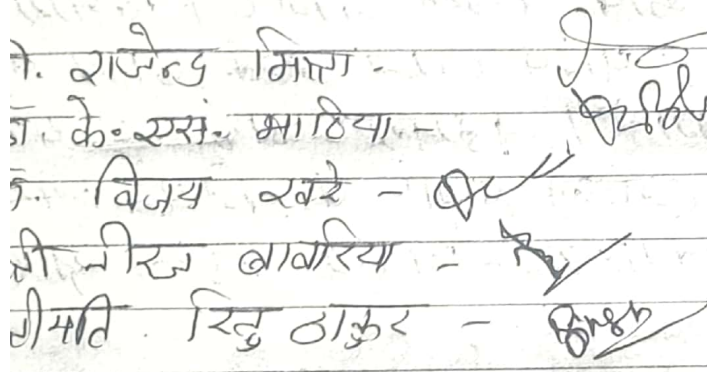 राजेन्द्र मित्तल -
के. एस. भाटिया -
विजय खरे -
नीरज बावरिया -
श्रीमति रितु ठाकुर -